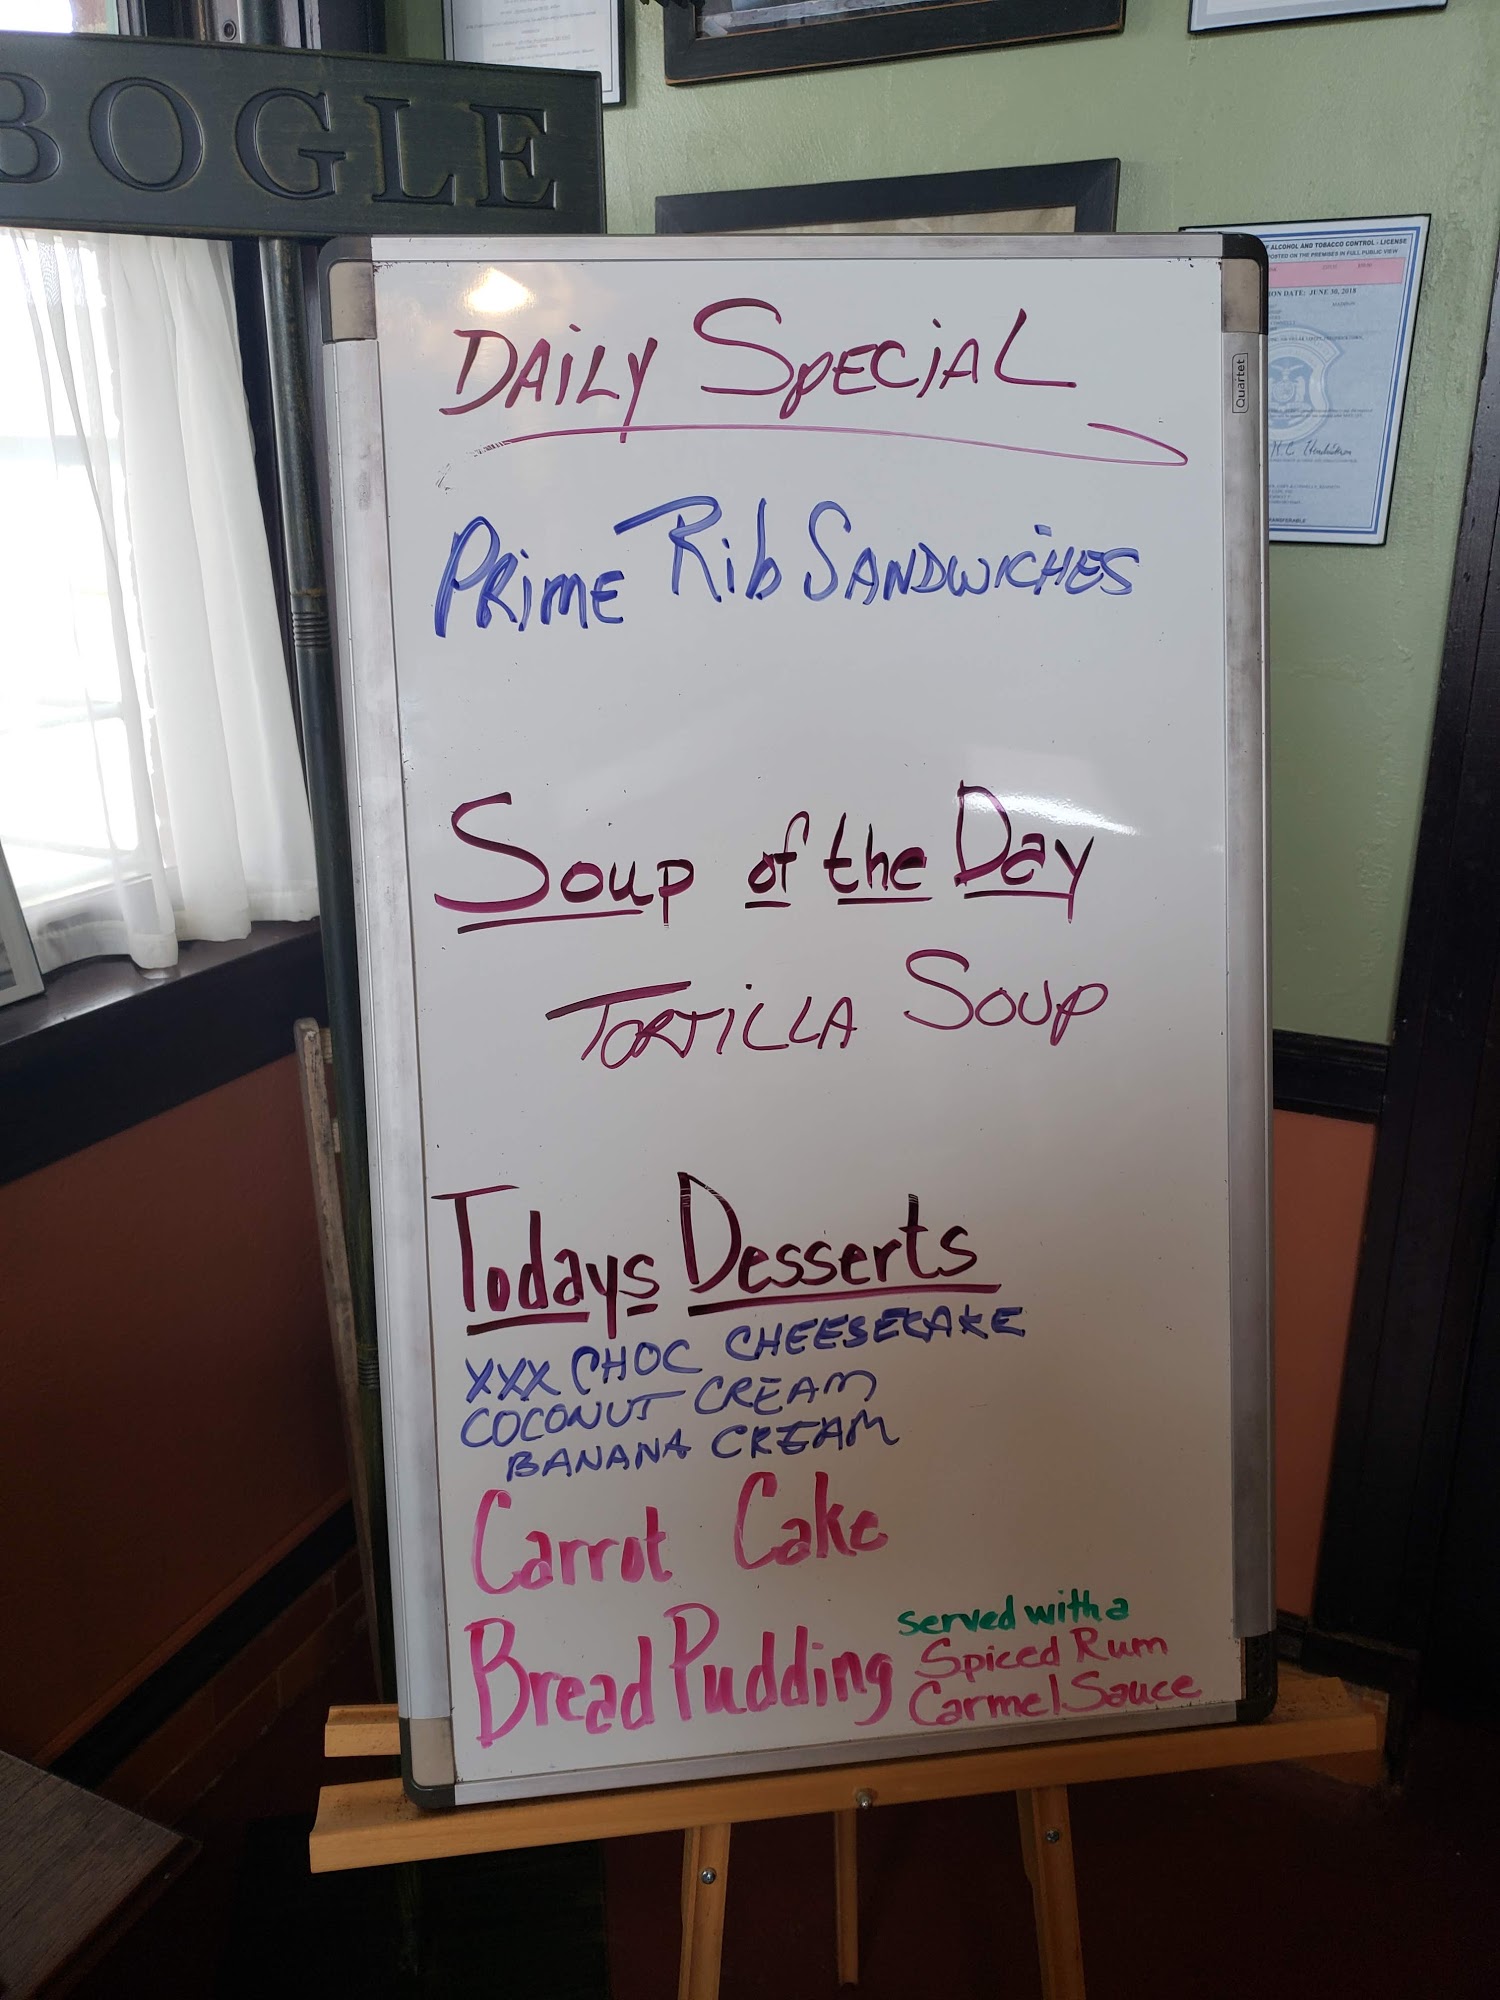 BOGLE
OF ALCOHOL AND TOBACCO CONTROL - LICENSE
POSTED ON THE PREMISES IN FULL PUBLIC VIEW
ION DATE: JUNE 30, 2018
Quartet
DAILY SPECIAL
PRIME RIB SANDWICHES
Soup of the Day
TORTILLA SOUP
Todays Desserts
XXX CHOC CHEESECAKE
COCONUT CREAM
BANANA CREAM
Carrot Cake
Bread Pudding served with a
Spiced Rum
Carmel Sauce